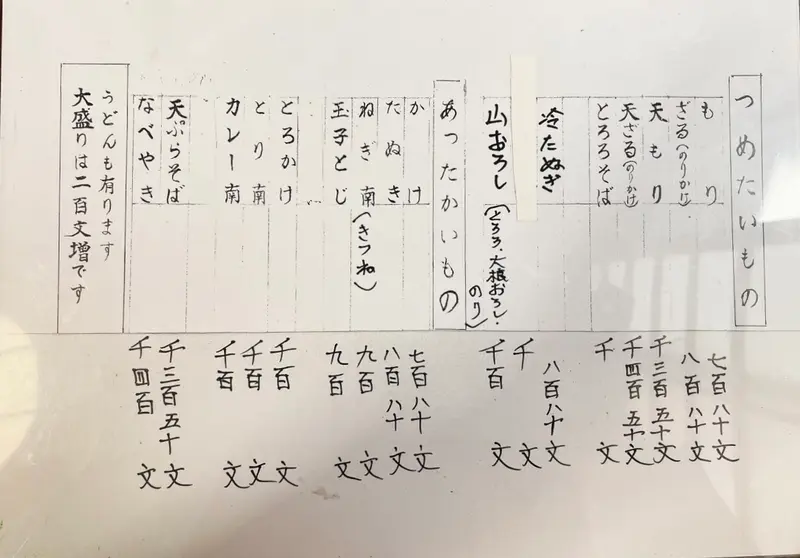 つめたいもの
もり 七百八十文
ざる(のりかけ) 八百八十文
天もり 千三百五十文
天ざる(のりかけ) 千四百五十文
とろろそば 千文
冷たぬき 八百八十文
千文
山おろし(とろろ、大根おろし・のり) 千百文
あったかいもの
かけ 七百八十文
たぬき 八百八十文
ねぎ南(きつね) 九百文
玉子とじ 九百文
とろかけ 千百文
とり南 千百文
カレー南 千百文
天ぷらそば 千三百五十文
なべやき 千四百文
うどんも有ります
大盛りは二百文増です